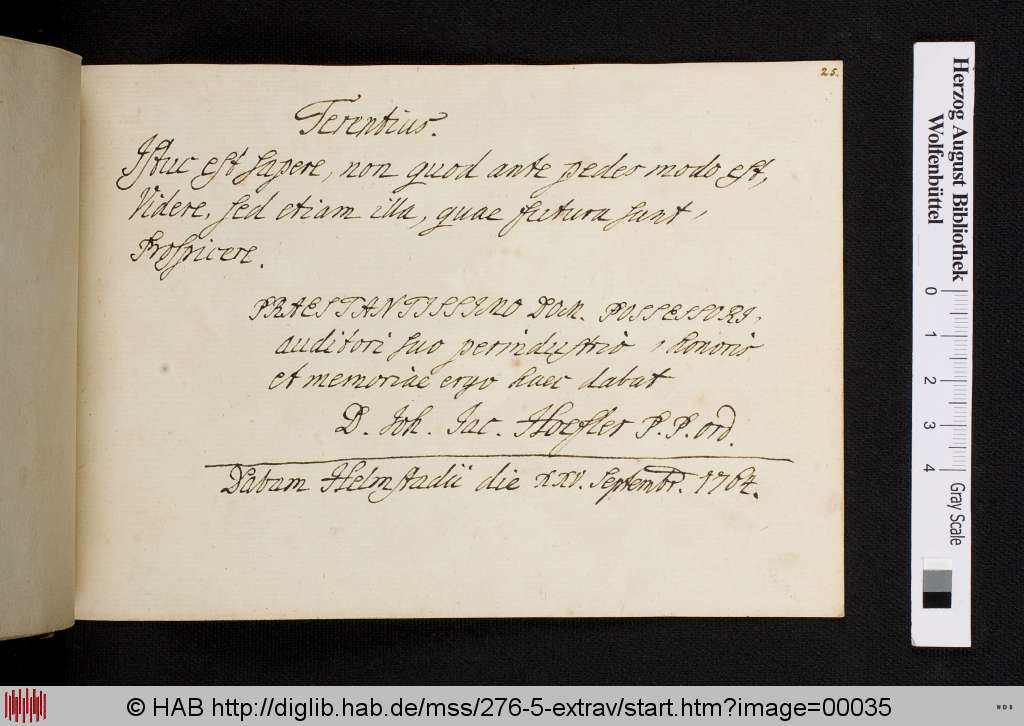 25.
Terentius.
Istuc est sapere, non quod ante pedes modo est,
Videre, sed etiam illa, quae futura sunt,
Prospicere.
PRAESTANTISSIMO DOM. POSSESSORI,
auditori suo perindustrio, honoris
et memoriae ergo haec dabat
D. Joh. Jac. Hoefler P. P. ord.
Dabam Helmstadii die XXV. Septembr. 1764.
Herzog August Bibliothek
Wolfenbüttel
0
1
2
3
4
Gray Scale
© HAB http://diglib.hab.de/mss/276-5-extrav/start.htm?image=00035
WDB